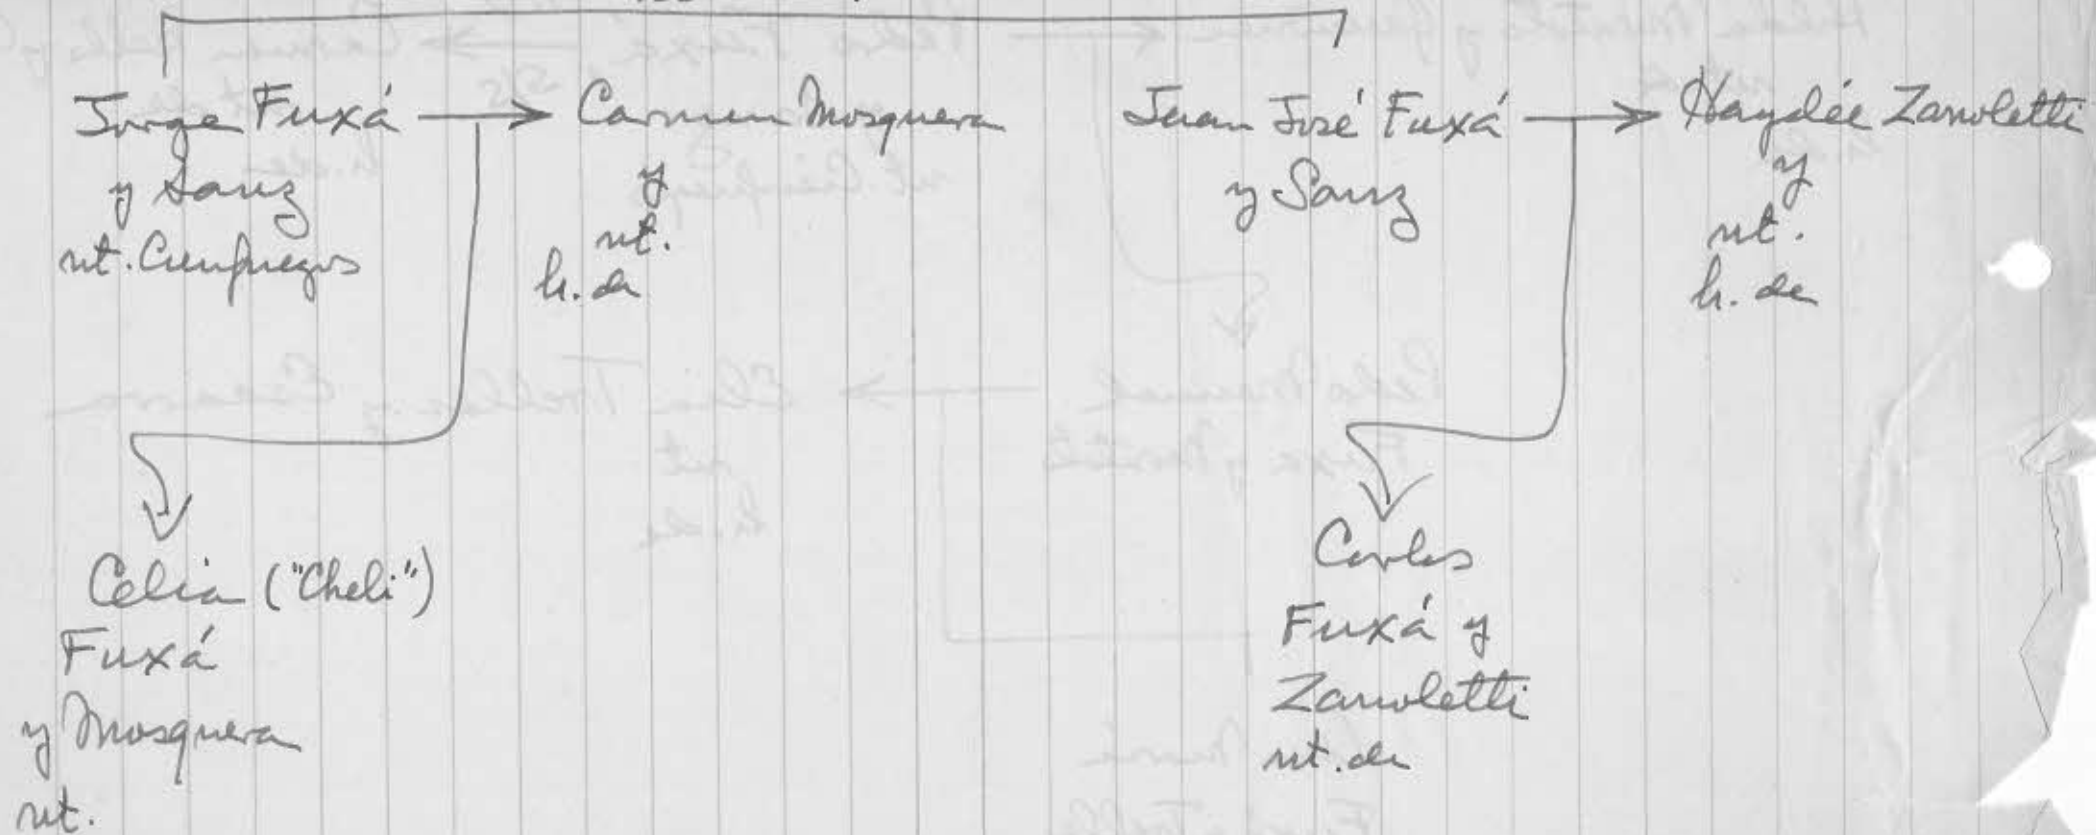 Jorge Fuxá
y Sanz
nt. Cienfuegos
Carmen Mosquera
y
nt.
h. de
Juan José Fuxá
y Sanz
Haydée Zanoletti
y
nt.
h. de
Celia ("Cheli")
Fuxá
y Mosquera
nt.
Carlos
Fuxá y
Zanoletti
nt. de